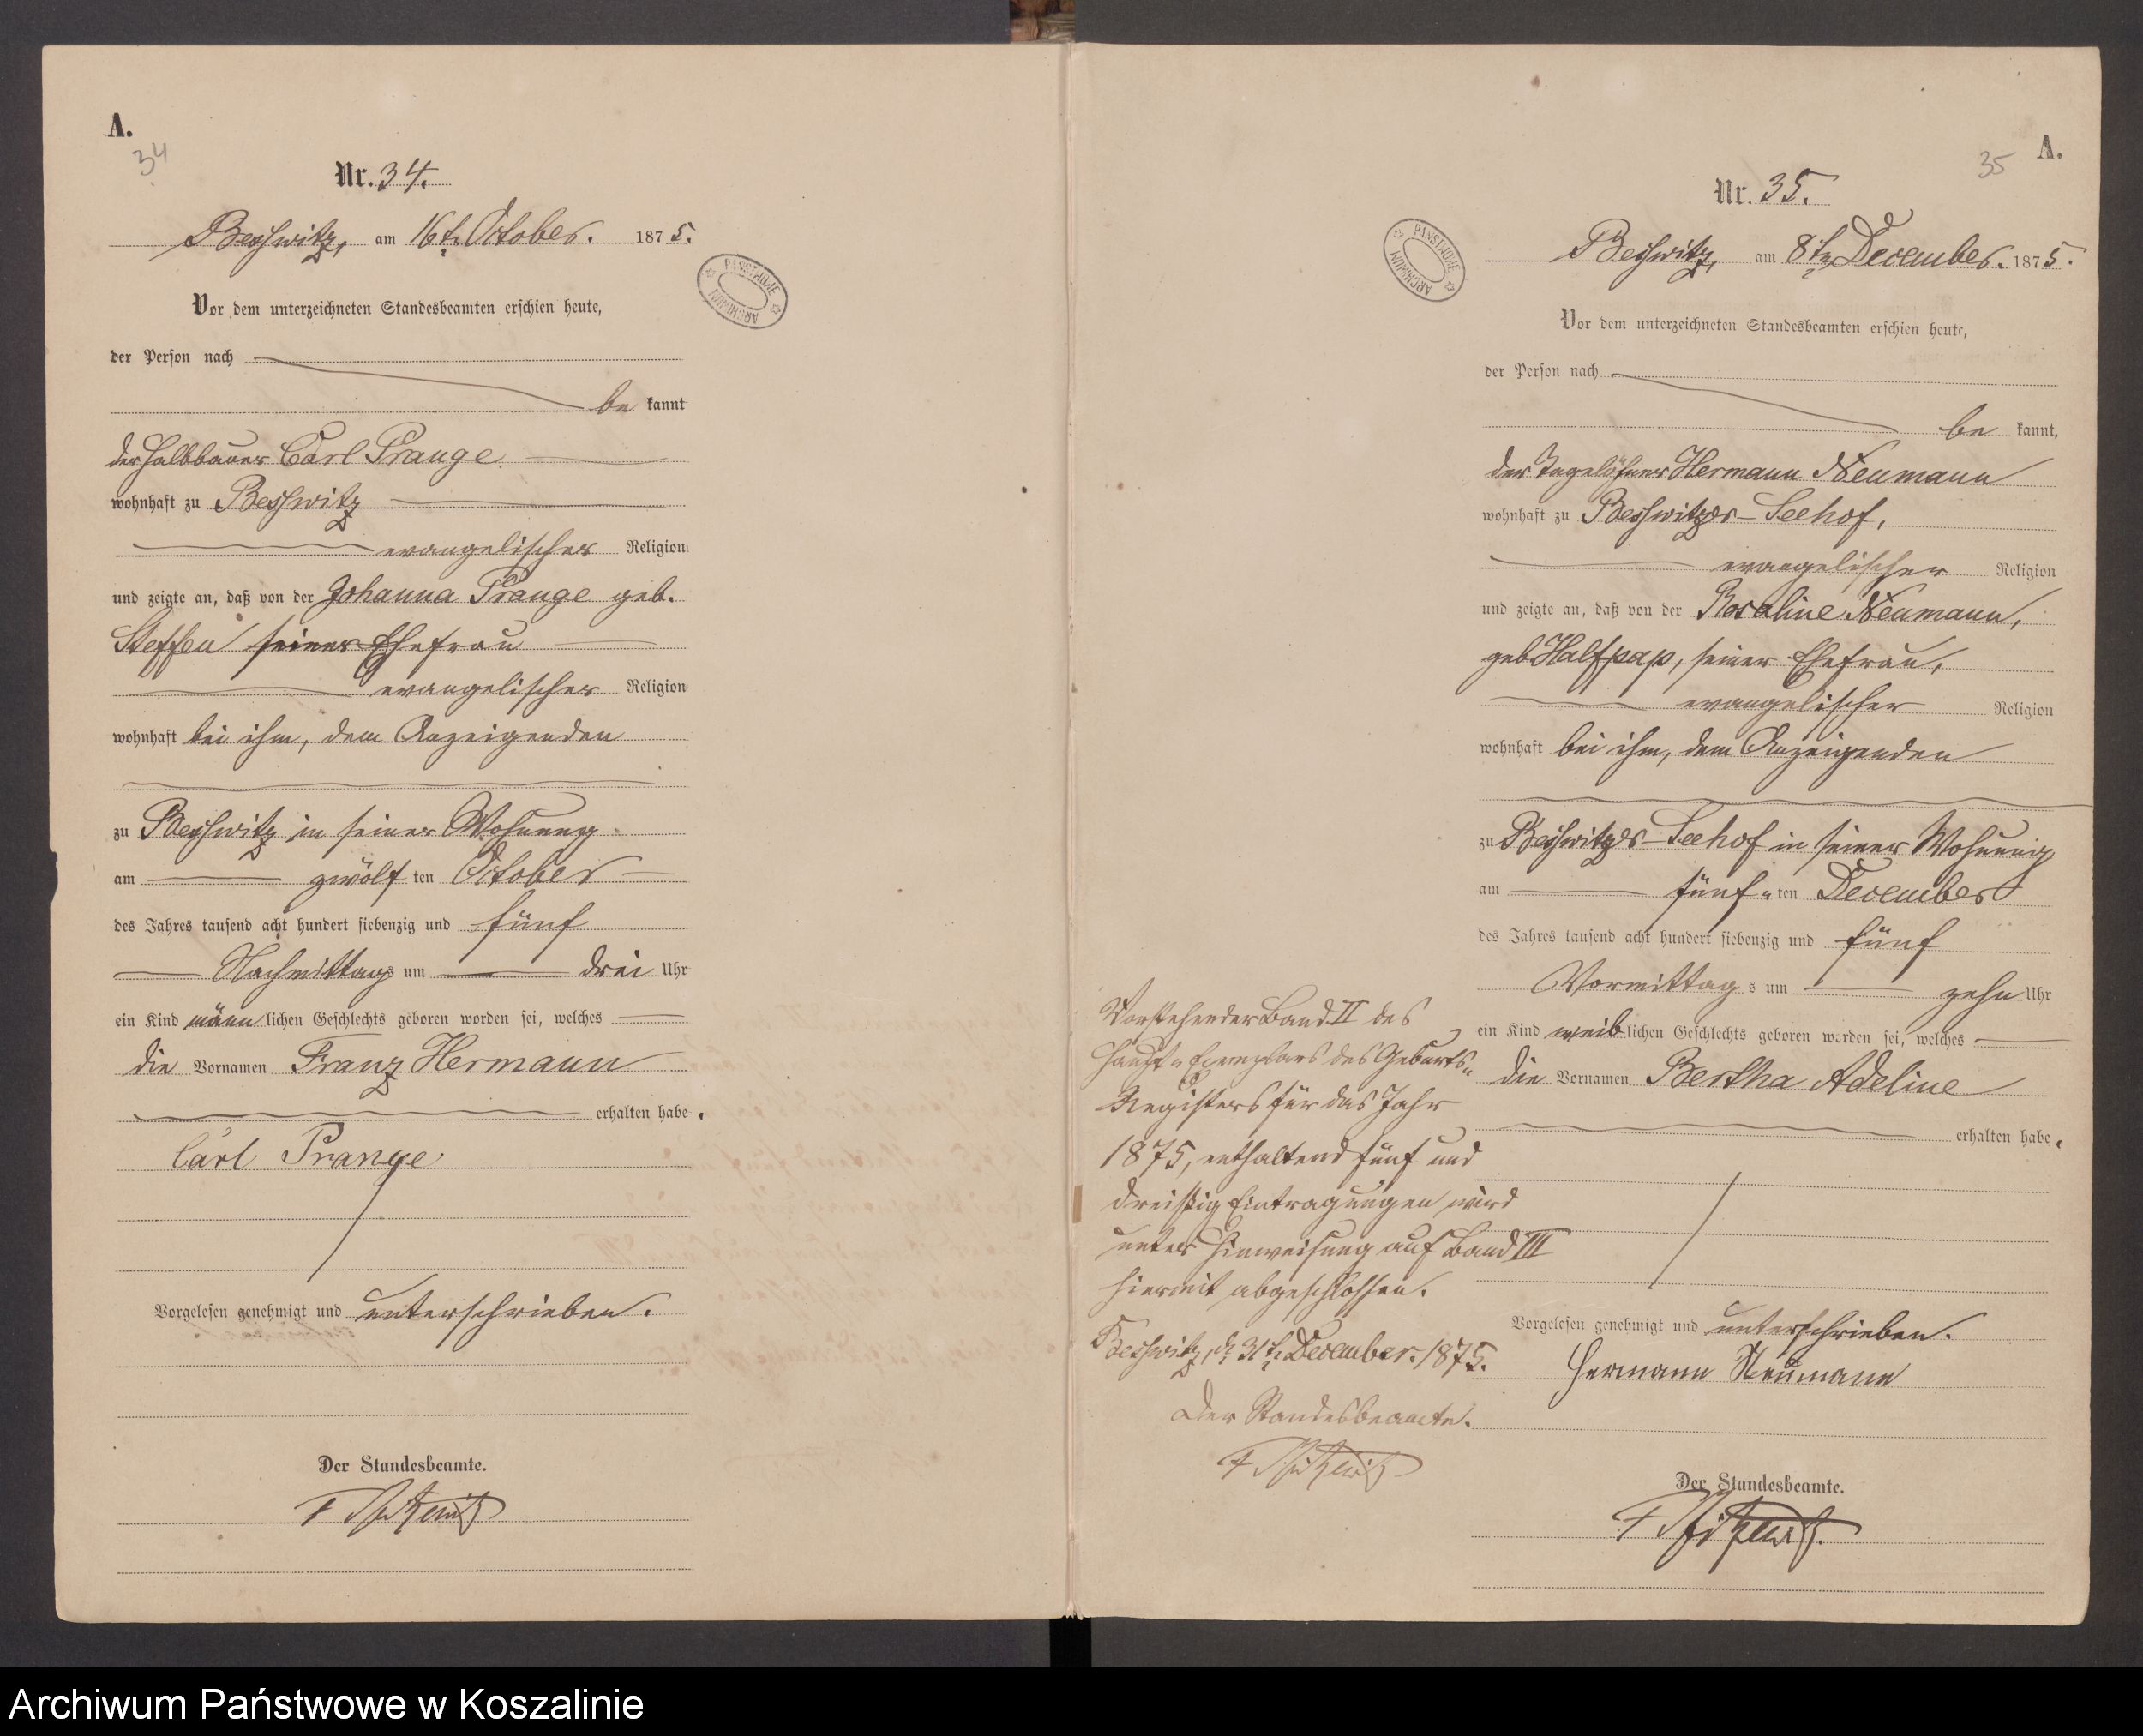 A.
34
Nr. 34.
Beßwitz, am 16t. October. 1875.
PAŃSTWOWE ARCHIWUM
Vor dem unterzeichneten Standesbeamten erschien heute,
der Person nach
be kannt
der Halbbauer Carl Prange
wohnhaft zu Beßwitz
evangelischer Religion
und zeigte an, daß von der Johanna Prange geb.
Steffen seiner Ehefrau
evangelischer Religion
wohnhaft bei ihm, dem Anzeigenden
zu Beßwitz in seiner Wohnung
am zwölf ten October
des Jahres tausend acht hundert siebenzig und fünf
Nachmittags um drei Uhr
ein Kind männlichen Geschlechts geboren worden sei, welches
die Vornamen Franz Hermann
erhalten habe.
Carl Prange
Vorgelesen genehmigt und unterschrieben.
Der Standesbeamte.
A.
35
Nr. 35.
Beßwitz, am 8t. December. 1875.
PAŃSTWOWE ARCHIWUM
Vor dem unterzeichneten Standesbeamten erschien heute,
der Person nach
be kannt,
der Tagelöhner Hermann Neumann
wohnhaft zu Beßwitzer-Seehof,
evangelischer Religion
und zeigte an, daß von der Rosaline Neumann,
geb Halfpap, seiner Ehefrau,
evangelischer Religion
wohnhaft bei ihm, dem Anzeigenden
zu Beßwitzer-Seehof in seiner Wohnung
am fünf-ten December
des Jahres tausend acht hundert siebenzig und fünf
Vormittags um zehn Uhr
ein Kind weiblichen Geschlechts geboren worden sei, welches
die Vornamen Bertha Adeline
erhalten habe.
Vorgelesen genehmigt und unterschrieben.
Hermann Neumann
Der Standesbeamte.
Vorstehender Band II des
Haupt-Exemplars des Geburts-
Registers für das Jahr
1875, enthaltend fünf und
dreißig Eintragungen wird
unter Hinweisung auf Band III
hiermit abgeschlossen.
Beßwitz, d. 31t. December. 1875.
Der Standesbeamte.
Archiwum Państwowe w Koszalinie